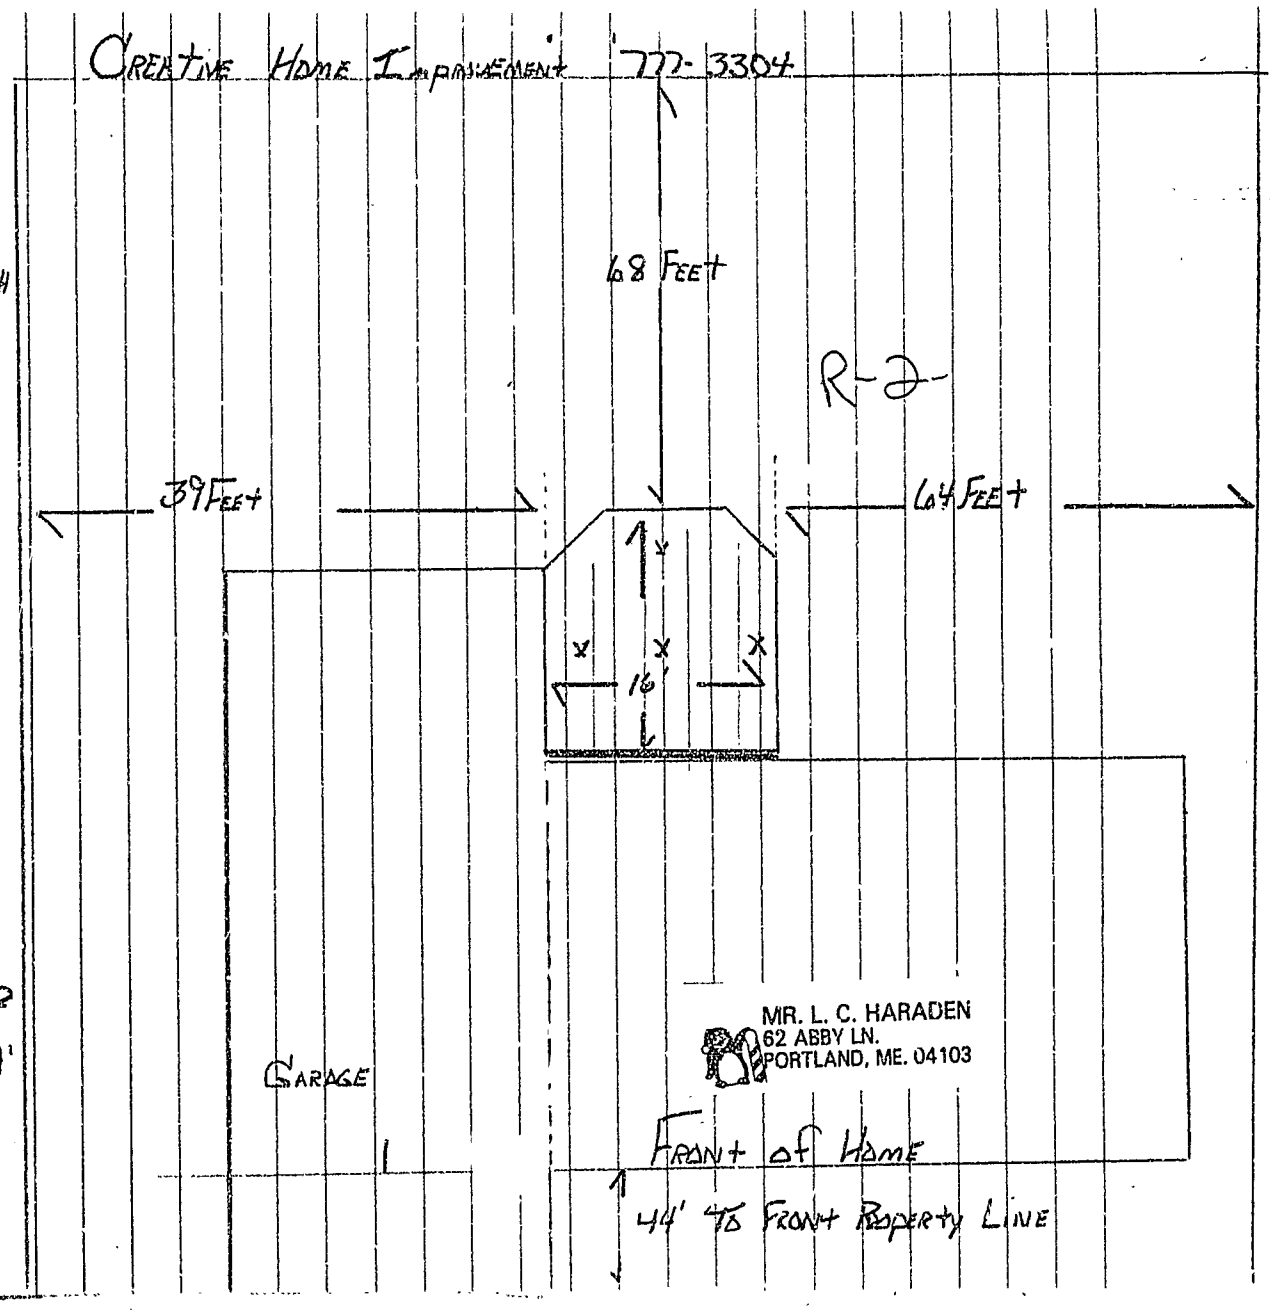 CREATIVE HOME IMPROVEMENT 777-3304
68 FEET
R-2-
39 FEET
64 FEET
X
X X X
16'
MR. L. C. HARADEN
62 ABBY LN.
PORTLAND, ME. 04103
GARAGE
FRONT of HOME
44' TO FRONT PROPERTY LINE